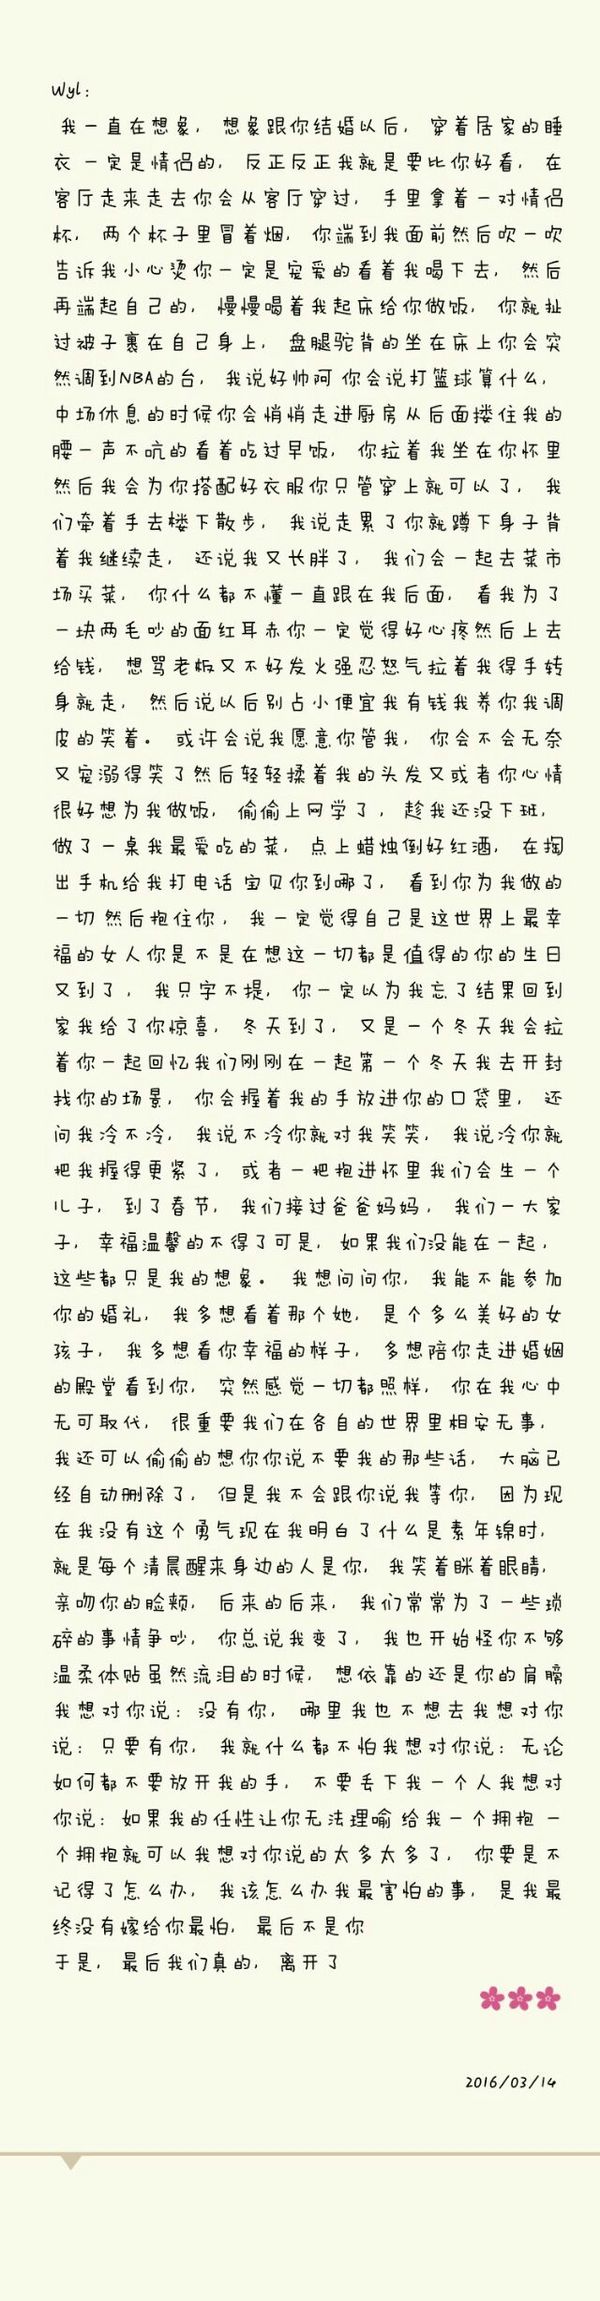 Wyl：
我一直在想象，想象跟你结婚以后，穿着居家的睡
衣 一定是情侣的，反正反正我就是要比你好看，在
客厅走来走去你会从客厅穿过，手里拿着一对情侣
杯，两个杯子里冒着烟，你端到我面前然后吹一吹
告诉我小心烫你一定是宠爱的看着我喝下去，然后
再端起自己的，慢慢喝着我起床给你做饭，你就扯
过被子裹在自己身上，盘腿驼背的坐在床上你会突
然调到NBA的台，我说好帅阿 你会说打篮球算什么，
中场休息的时候你会悄悄走进厨房从后面搂住我的
腰一声不吭的看着吃过早饭，你拉着我坐在你怀里
然后我会为你搭配好衣服你只管穿上就可以了，我
们牵着手去楼下散步，我说走累了你就蹲下身子背
着我继续走，还说我又长胖了，我们会一起去菜市
场买菜，你什么都不懂一直跟在我后面，看我为了
一块两毛吵的面红耳赤你一定觉得好心疼然后上去
给钱，想骂老板又不好发火强忍怒气拉着我得手转
身就走，然后说以后别占小便宜我有钱我养你我调
皮的笑着。或许会说我愿意你管我，你会不会无奈
又宠溺得笑了然后轻轻揉着我的头发又或者你心情
很好想为我做饭，偷偷上网学了，趁我还没下班，
做了一桌我最爱吃的菜，点上蜡烛倒好红酒，在掏
出手机给我打电话 宝贝你到哪了，看到你为我做的
一切 然后抱住你，我一定觉得自己是这世界上最幸
福的女人你是不是在想这一切都是值得的你的生日
又到了，我只字不提，你一定以为我忘了结果回到
家我给了你惊喜，冬天到了，又是一个冬天我会拉
着你一起回忆我们刚刚在一起第一个冬天我去开封
找你的场景，你会握着我的手放进你的口袋里，还
问我冷不冷，我说不冷你就对我笑笑，我说冷你就
把我握得更紧了，或者一把抱进怀里我们会生一个
儿子，到了春节，我们接过爸爸妈妈，我们一大家
子，幸福温馨的不得了可是，如果我们没能在一起，
这些都只是我的想象。我想问问你，我能不能参加
你的婚礼，我多想看着那个她，是个多么美好的女
孩子，我多想看你幸福的样子，多想陪你走进婚姻
的殿堂看到你，突然感觉一切都照样，你在我心中
无可取代，很重要我们在各自的世界里相安无事，
我还可以偷偷的想你你说不要我的那些话，大脑已
经自动删除了，但是我不会跟你说我等你，因为现
在我没有这个勇气现在我明白了什么是素年锦时，
就是每个清晨醒来身边的人是你，我笑着眯着眼睛，
亲吻你的脸颊，后来的后来，我们常常为了一些琐
碎的事情争吵，你总说我变了，我也开始怪你不够
温柔体贴虽然流泪的时候，想依靠的还是你的肩膀
我想对你说：没有你，哪里我也不想去我想对你
说：只要有你，我就什么都不怕我想对你说：无论
如何都不要放开我的手，不要丢下我一个人我想对
你说：如果我的任性让你无法理喻 给我一个拥抱 一
个拥抱就可以我想对你说的太多太多了，你要是不
记得了怎么办，我该怎么办我最害怕的事，是我最
终没有嫁给你最怕，最后不是你
于是，最后我们真的，离开了
2016/03/14